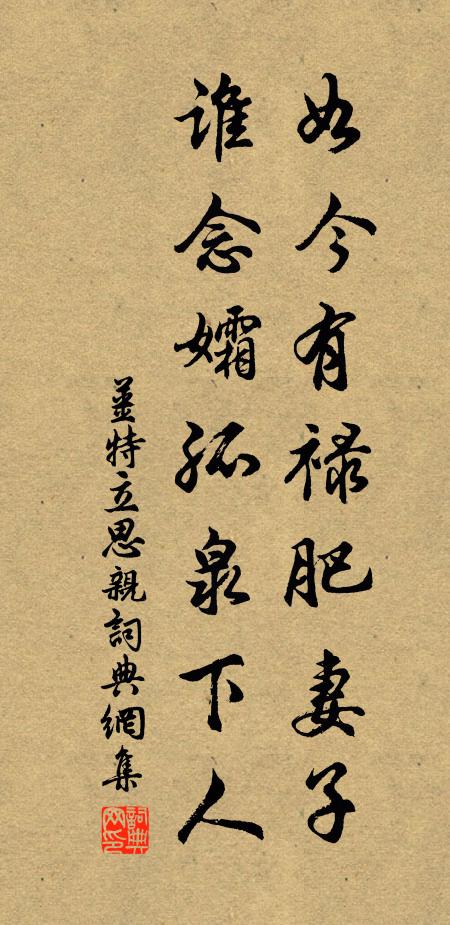 如今有禄肥妻子
谁念孀孤泉下人
姜特立思親詞典網集
詞典网印